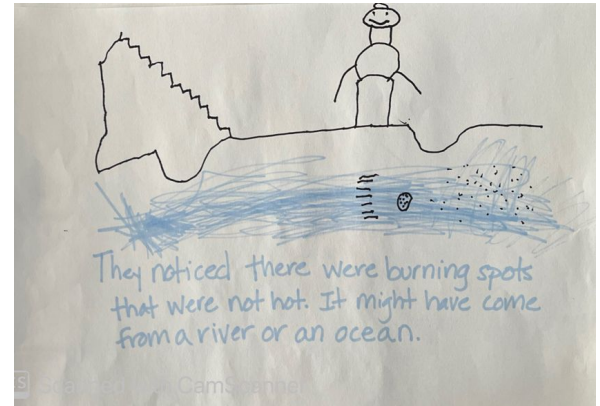 They noticed there were burning spots
that were not hot. It might have come
from a river or an ocean.
CamScanner